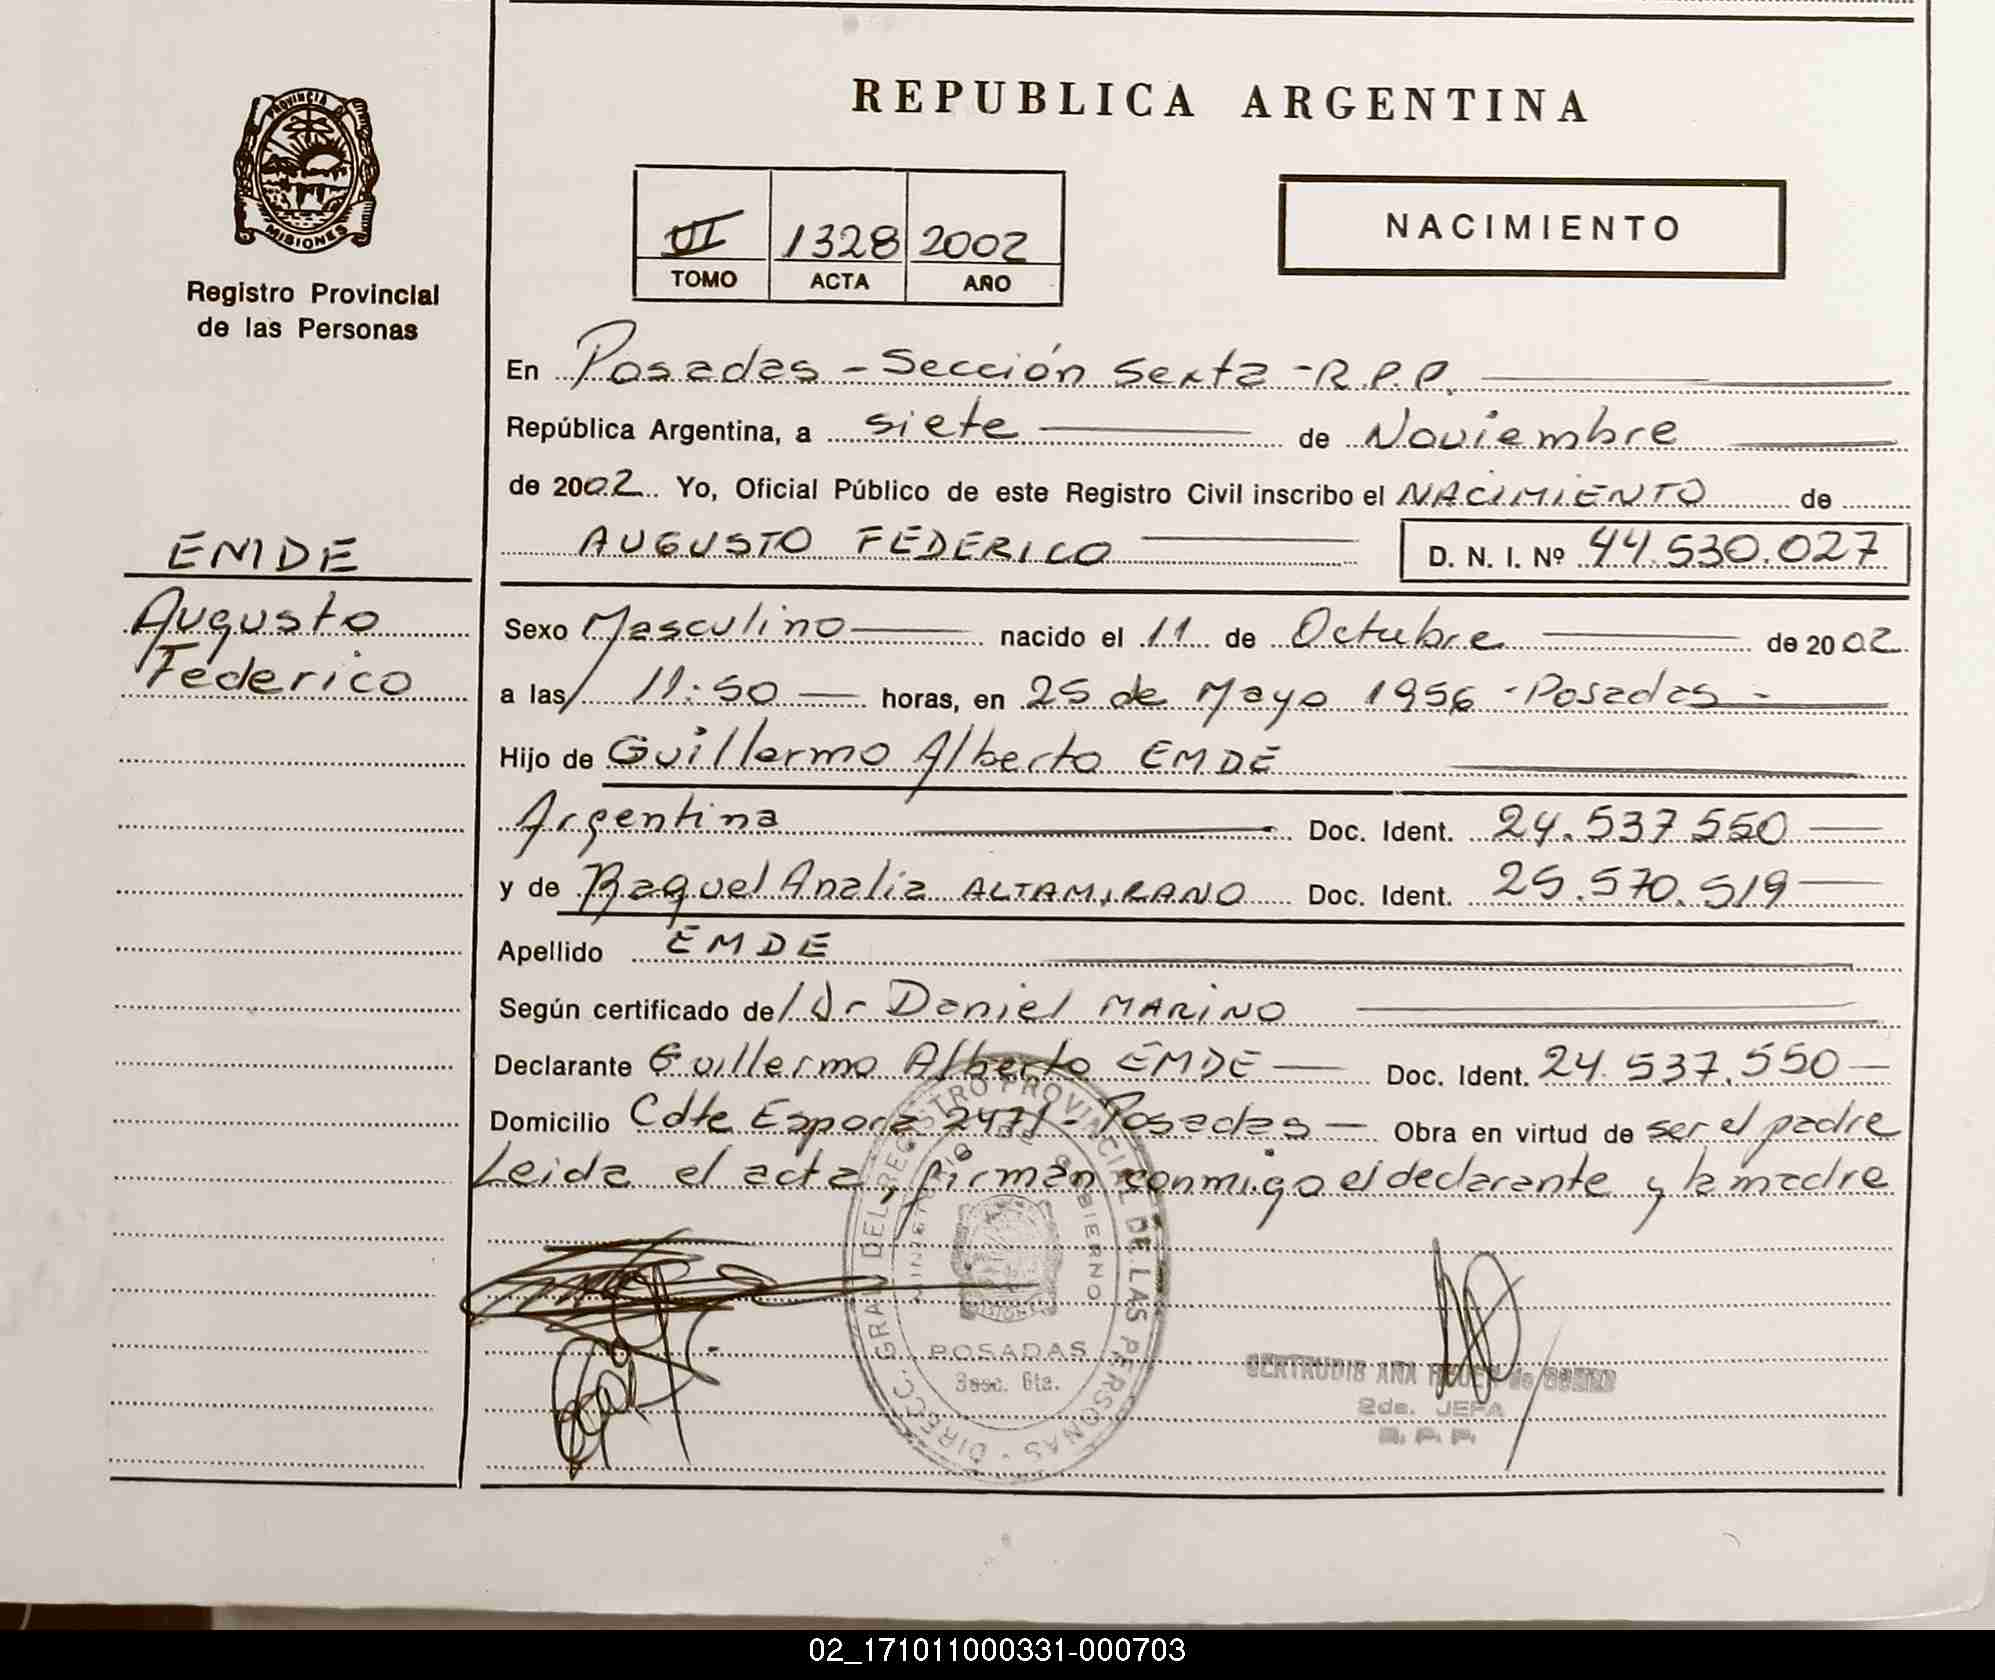 REPUBLICA ARGENTINA
PROVINCIA DE
MISIONES
Registro Provincial
de las Personas
VI 1328 2002
TOMO ACTA AÑO
NACIMIENTO
En Posadas - Sección Sexta - R.P.P.
República Argentina, a siete de Noviembre
de 2002. Yo, Oficial Público de este Registro Civil inscribo el NACIMIENTO de
AUGUSTO FEDERICO D. N. I. Nº 44.530.027
EMDE
Augusto
Federico
Sexo Masculino nacido el 11 de Octubre de 2002
a las 11:50 horas, en 25 de Mayo 1956 - Posadas -
Hijo de Guillermo Alberto EMDE
Argentina Doc. Ident. 24.537.550
y de Raquel Analia ALTAMIRANO Doc. Ident. 25.570.519
Apellido EMDE
Según certificado de Dr Daniel MARINO
Declarante Guillermo Alberto EMDE Doc. Ident. 24.537.550
Domicilio Cdte Espora 2471 - Posadas Obra en virtud de ser el padre
Leida el acta, firman conmigo el declarante y la madre
DIRECC. GRAL DEL REGISTRO PROVINCIAL DE LAS PERSONAS
MINISTERIO DE GOBIERNO
MISIONES
POSADAS
Secc. 6ta.
GERTRUDIS ANA de
2da. JEFA
R. P. P.
02_171011000331-000703